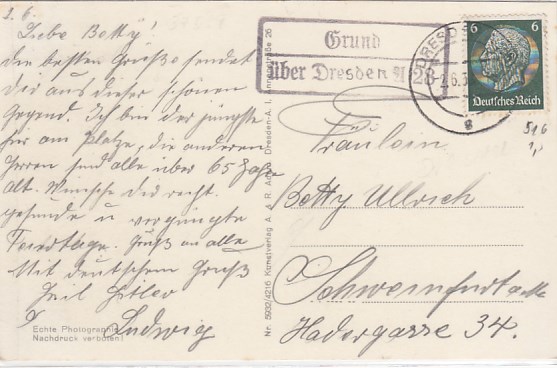 1.6.
Liebe Betty!
die besten Grüße sendet
Dir aus dieser schönen
Gegend. Ich bin der jüngste
hier am Platze, die anderen
Herren sind alle über 65 Jahre
alt. Wünsche Dir recht
gesunde u vergnügte
Feiertage. Gruß an alle
Mit deutschem Gruß
Heil Hitler
Ludwig
Echte Photographie
Nachdruck verboten!
Nr. 5932/4216 Kunstverlag A. & R. Adam, Dresden-A. I, Annenstraße 26
Grund
über Dresden A 28
DRESDEN
6 6
Deutsches Reich
516
1,-
Fräulein
Betty Ullrich
Schweinfurt a/M
Hadergasse 34.